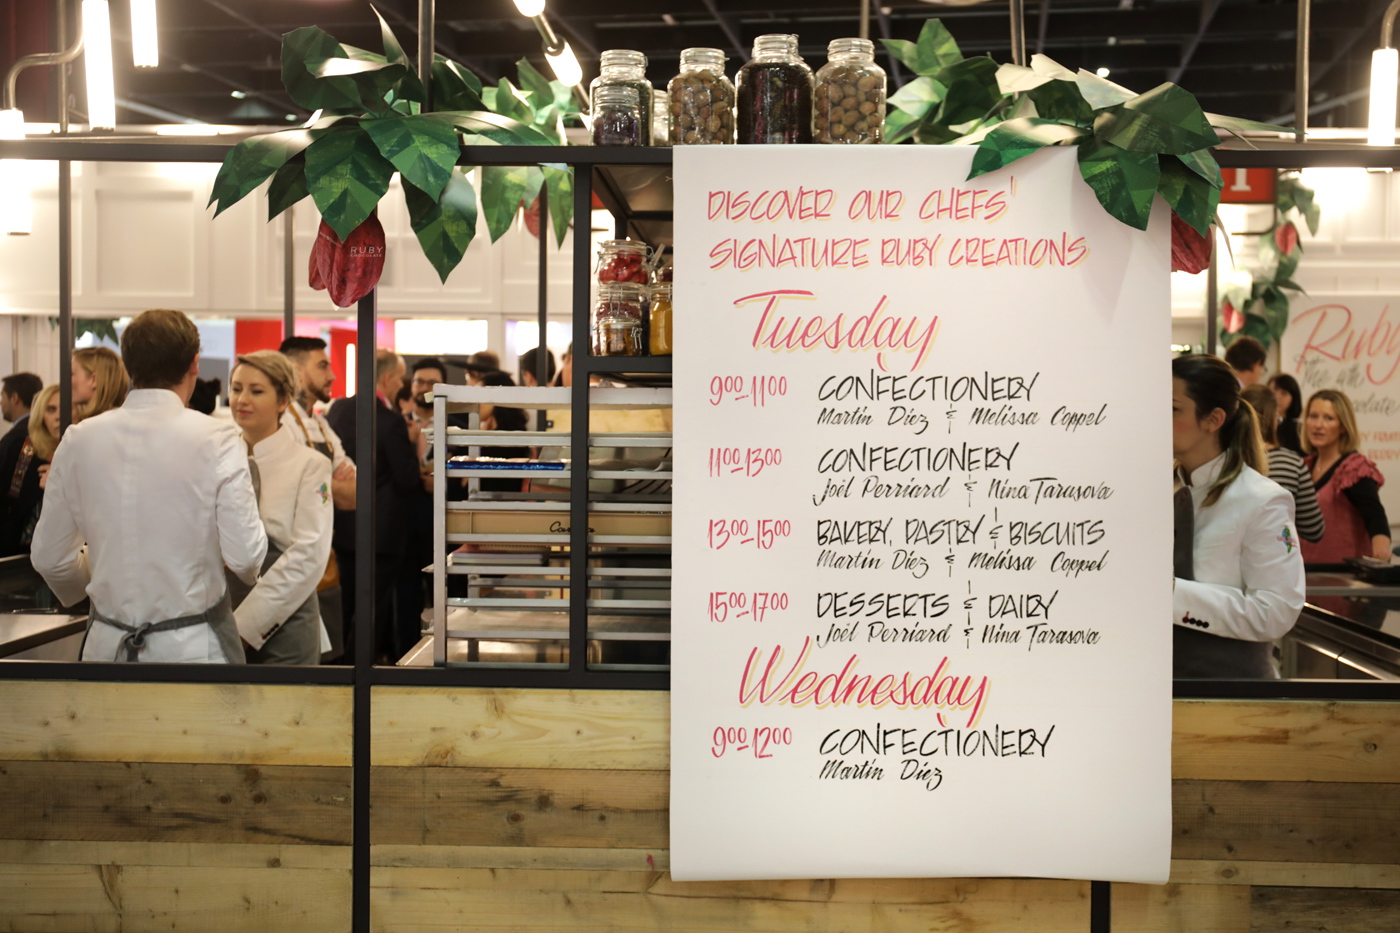 RUBY
CHOCOLATE
DISCOVER OUR CHEFS'
SIGNATURE RUBY CREATIONS
Tuesday
900-1100 CONFECTIONERY
Martín Díez & Melissa Coppel
1100-1300 CONFECTIONERY
Joël Perriard & Nina Tarasova
1300-1500 BAKERY, PASTRY & BISCUITS
Martín Díez & Melissa Coppel
1500-1700 DESSERTS & DAIRY
Joël Perriard & Nina Tarasova
Wednesday
900-1200 CONFECTIONERY
Martín Díez
Ruby
the 4th